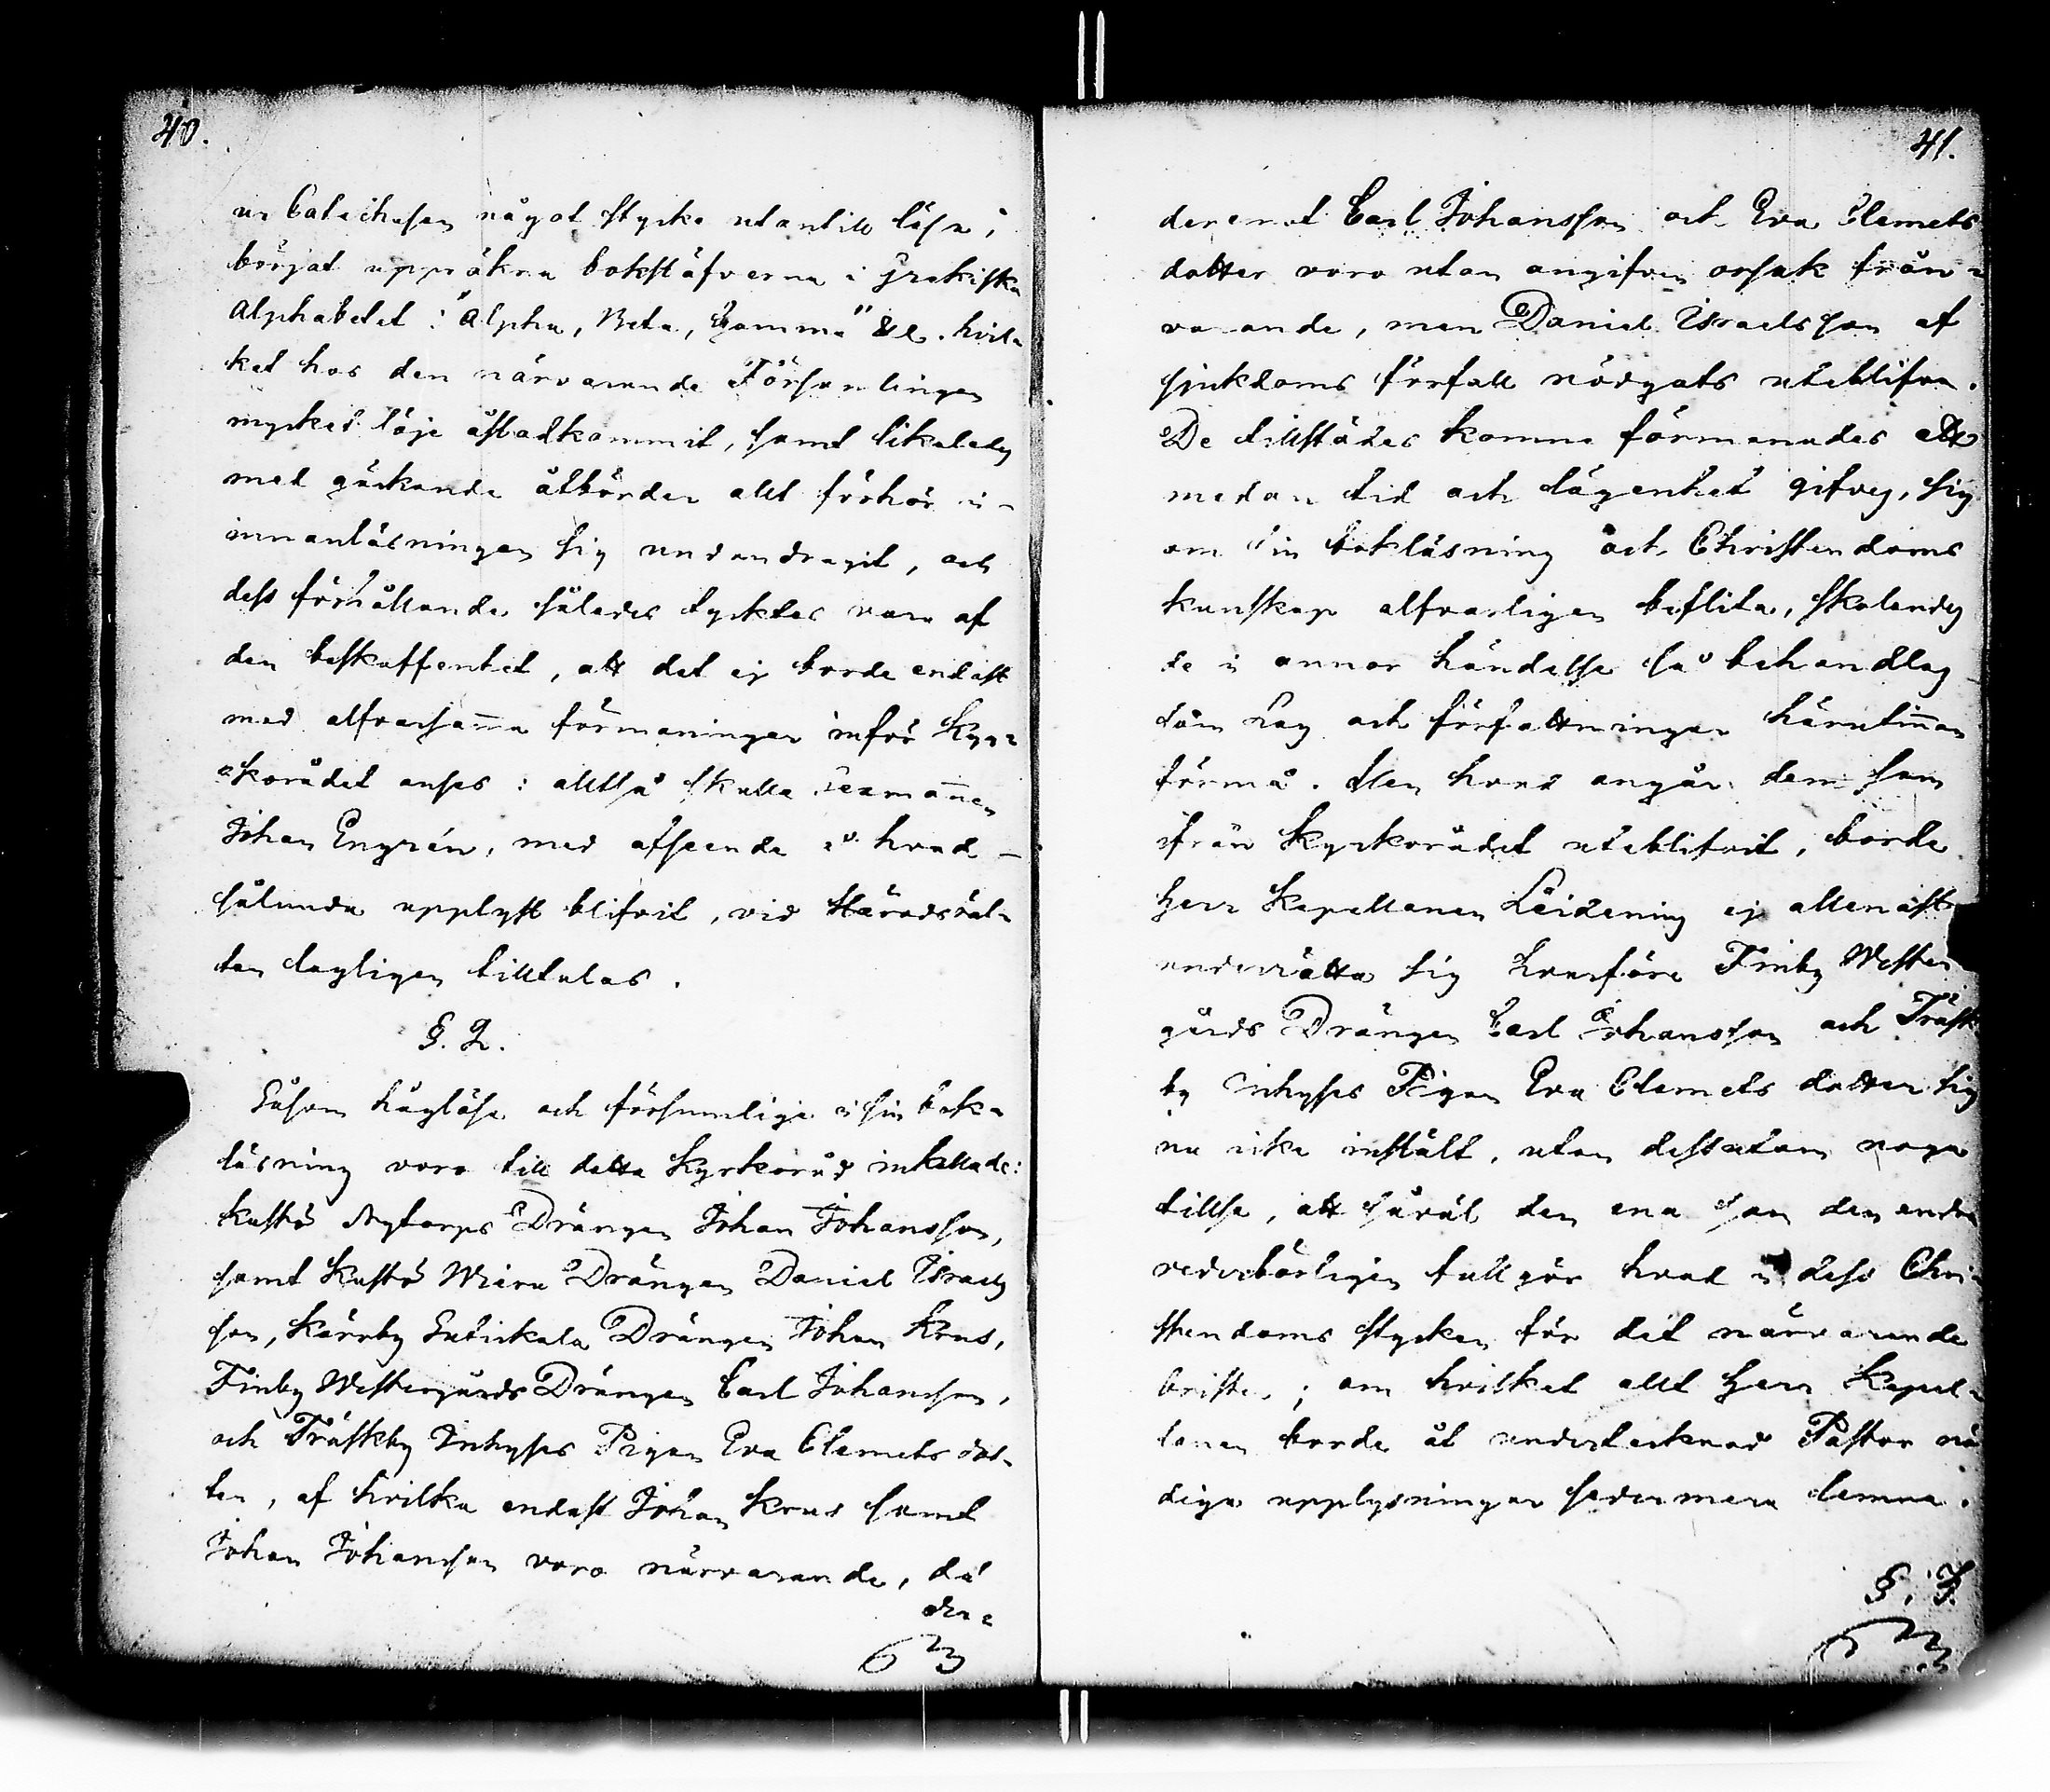 40.
ur Catechesen något stycke utantill läsa,
börjat uppräkna bokstäfverna i Grekiska
Alphabetet: "Alpha, Beta, Gamma" &c. hvil-
ket hos den närvarande Församlingen
mycket löje åstadkommit, samt likaledes
med gäckande åtbörder allt förhör i
innanläsningen sig undandragit, och
dess förhållande således tycktes vara af
den beskaffenhet, att det ej borde endast
med alfvarsamma förmaningar inför Kyr-
korådet anses: alltså skulle Sexmannen
Johan Engrén, med afseende å hvad
sålunda upplyst blifvit, vid Häradsrät-
ten lagligen tilltalas.
§. 2.
Såsom håglöse och försumlige i sin bok-
läsning voro till detta Kyrkoråd inkallade:
Kustö Nytorps Drängen Johan Johansson,
samt Kustö Drängen Daniel Israels
son, Kärrby Drängen Johan Krus,
Finby Westergårds Drängen Carl Johansson,
och Träskby Inhyses Pigan Eva Clemets dot-
ter, af hvilka endast Johan Krus samt
Johan Johansson voro närvarande, då
der-
41.
deremot Carl Johansson och Eva Clemets
dotter voro utan angifven orsak från-
varande, men Daniel Israelsson af
sjukdoms förfall nödgats uteblifva.
De tillstädes komne förmanades att
medan tid och lägenhet gifves, sig
om sin bokläsning och Christendoms
kunskap alfvarligen beflita, skolandes
de i annor händelse så behandlas
som Lag och författningar härutinnan
förmå. Men hvad angår dem som
ifrån Kyrkorådet uteblifvit, borde
Herr Kapellanen ej allenast
underrätta sig hvarföre Finby Wester
gårds Drängen Carl Johansson och Träsk
by Inhyses Pigan Eva Clemets dotter sig
nu icke inställt, utan dessutom noga
tillse, att såväl den ena som den andra
vederbörligen fullgör hvad i dess Chri-
stendoms stycken för det närvarande
brister; om hvilket allt Herr Kapel-
lanen borde åt undertecknad Pastor nö
diga upplysningar sedermera lemna.
§. 3.